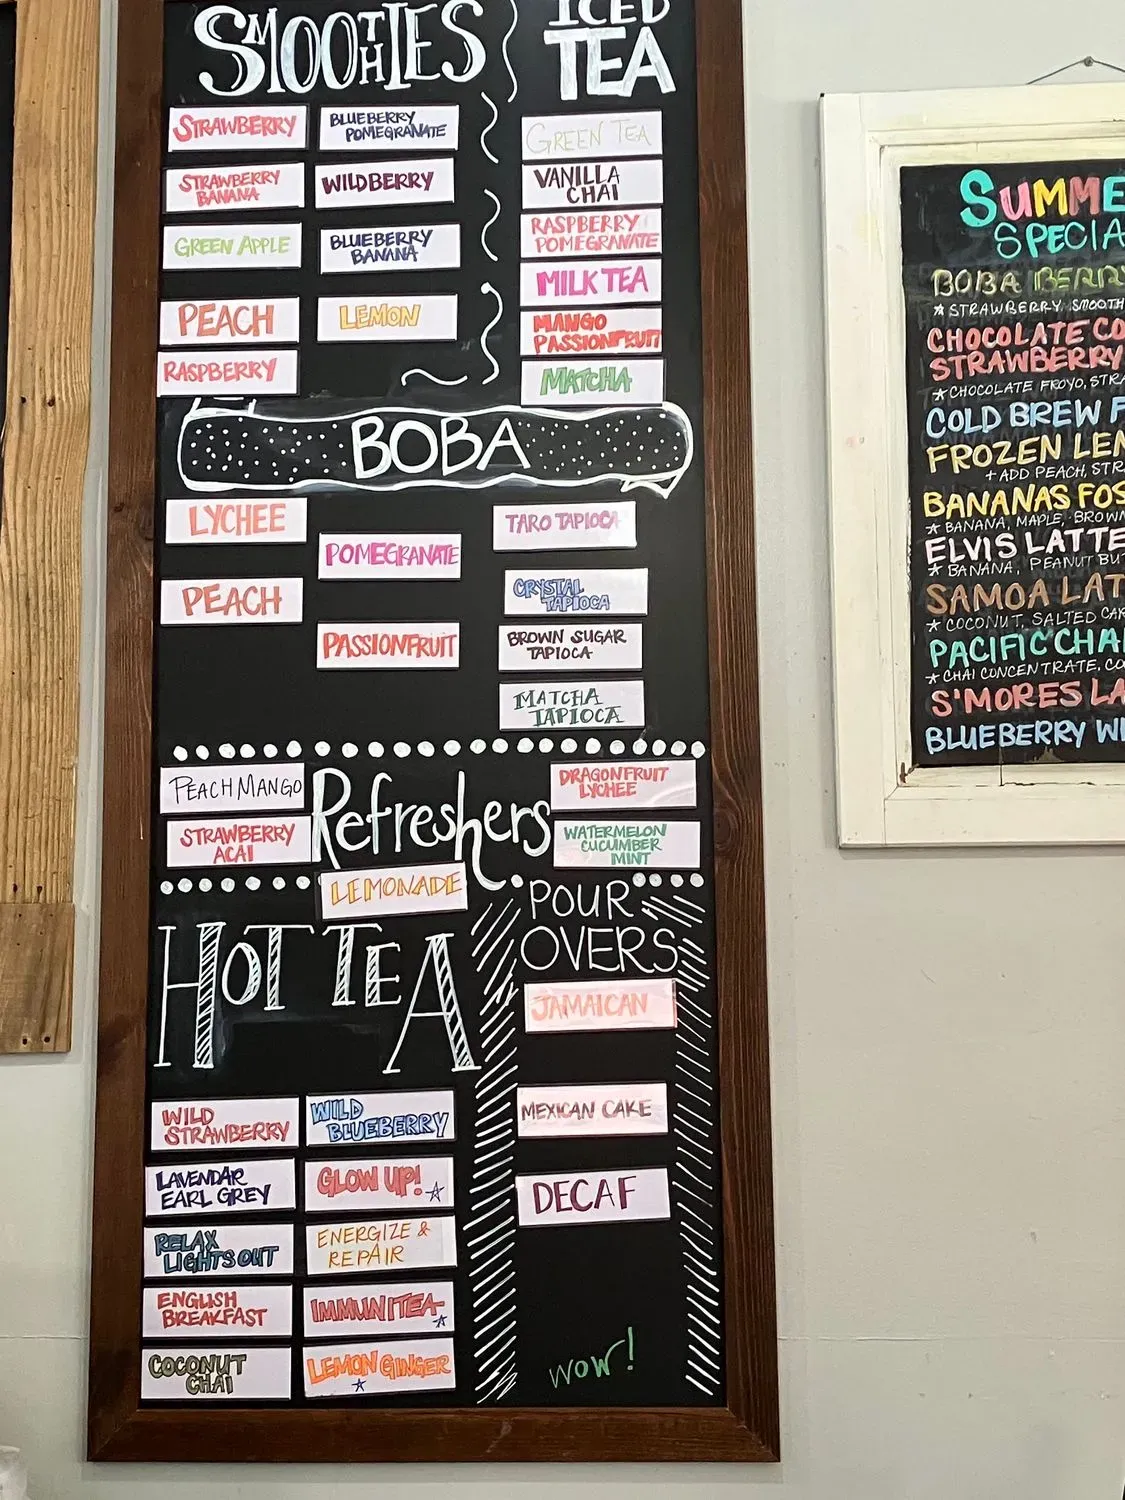 SMOOTHIES
STRAWBERRY
STRAWBERRY
BANANA
GREEN APPLE
PEACH
RASPBERRY
BLUEBERRY
POMEGRANATE
WILDBERRY
BLUEBERRY
BANANA
LEMON
ICED
TEA
GREEN TEA
VANILLA
CHAI
RASPBERRY
POMEGRANATE
MILK TEA
MANGO
PASSIONFRUIT
MATCHA
BOBA
LYCHEE
PEACH
POMEGRANATE
PASSIONFRUIT
TARO TAPIOCA
CRYSTAL
TAPIOCA
BROWN SUGAR
TAPIOCA
MATCHA
TAPIOCA
Refreshers
PEACH MANGO
STRAWBERRY
ACAI
LEMONADE
DRAGONFRUIT
LYCHEE
WATERMELON
CUCUMBER
MINT
HOT TEA
WILD
STRAWBERRY
LAVENDAR
EARL GREY
RELAX
LIGHTS OUT
ENGLISH
BREAKFAST
COCONUT
CHAI
WILD
BLUEBERRY
GLOW UP!
ENERGIZE &
REPAIR
IMMUNITEA
LEMON GINGER
POUR
OVERS
JAMAICAN
MEXICAN CAKE
DECAF
WOW!
SUMME
SPECIA
BOBA BERRY
*STRAWBERRY SMOOTH
CHOCOLATE CO
STRAWBERRY
*CHOCOLATE FROYO, STRA
COLD BREW F
FROZEN LEM
+ ADD PEACH, STR
BANANAS FOS
* BANANA, MAPLE, BROWN
ELVIS LATTE
* BANANA, PEANUT BUT
SAMOA LAT
* COCONUT, SALTED CAR
PACIFIC CHAI
* CHAI CONCENTRATE, CO
S'MORES LA
BLUEBERRY W